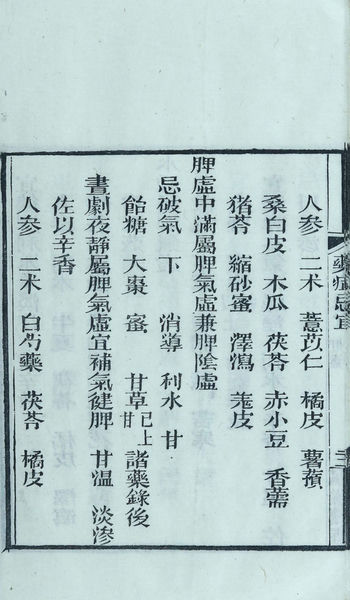 人參 二术 薏苡仁 橘皮 薯蕷
桑白皮 木瓜 茯苓 赤小豆 香薷
豬苓 縮砂蜜 澤瀉 薑皮
脾虛中滿屬脾氣虛兼脾陰虛
忌破氣 下 消導 利水 甘
飴糖 大棗 蜜 甘草 已上諸藥錄後 甘
晝劇夜靜屬脾氣虛宜補氣健脾 甘温 淡滲
佐以辛香
人參 二术 白芍藥 茯苓 橘皮
藥症忌宜